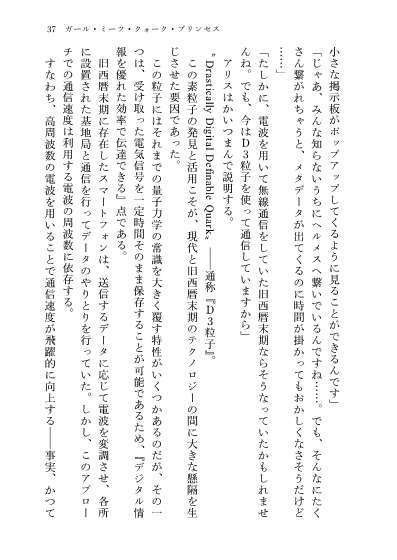 37　ガール・ミーツ・クォーク・プリンセス
小さな掲示板がポップアップしてくるように見ることができるんです」
「じゃあ、みんな知らないうちにヘルメスへ繋いでいるんですね……。でも、そんなにたく
さん繋がれちゃうと、メタデータが出てくるのに時間が掛かってもおかしくなさそうだけど
……」
「たしかに、電波を用いて無線通信をしていた旧西暦末期ならそうなっていたかもしれませ
んね。でも、今はＤ３粒子を使って通信していますから」
アリスはかいつまんで説明する。
〝Drastically Digital Definable Quark〟――通称『Ｄ３粒子』。
この素粒子の発見と活用こそが、現代と旧西暦末期のテクノロジーの間に大きな懸隔を生
じさせた要因であった。
この粒子にはそれまでの量子力学の常識を大きく覆す特性がいくつかあるのだが、その一
つは、受け取った電気信号を一定時間そのまま保存することが可能であるため、『デジタル情
報を優れた効率で伝達できる』点である。
旧西暦末期に存在したスマートフォンは、送信するデータに応じて電波を変調させ、各所
に設置された基地局と通信を行ってデータのやりとりを行っていた。しかし、このアプロー
チでの通信速度は利用する電波の周波数に依存する。
すなわち、高周波数の電波を用いることで通信速度が飛躍的に向上する――事実、かつて